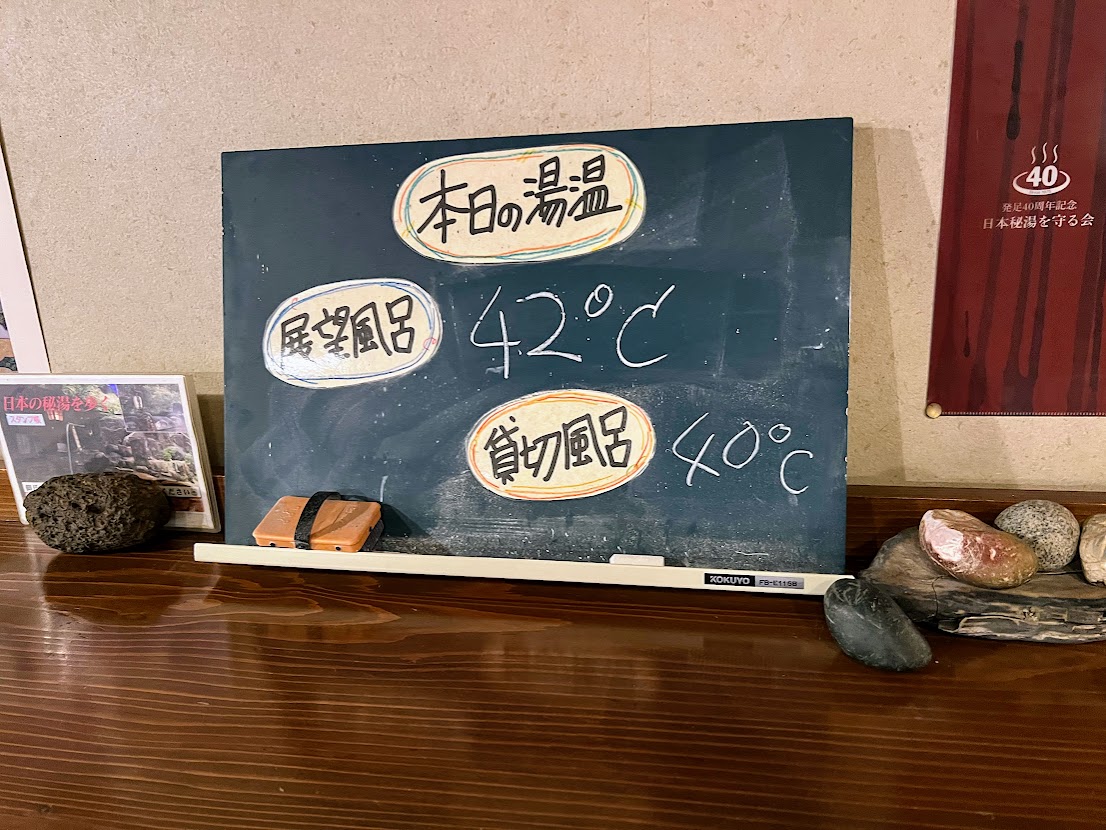 本日の湯温
展望風呂 42℃
貸切風呂 40℃
KOKUYO FB-E11SB
日本の秘湯を歩く
スタンプ帳
40
発足40周年記念
日本秘湯を守る会